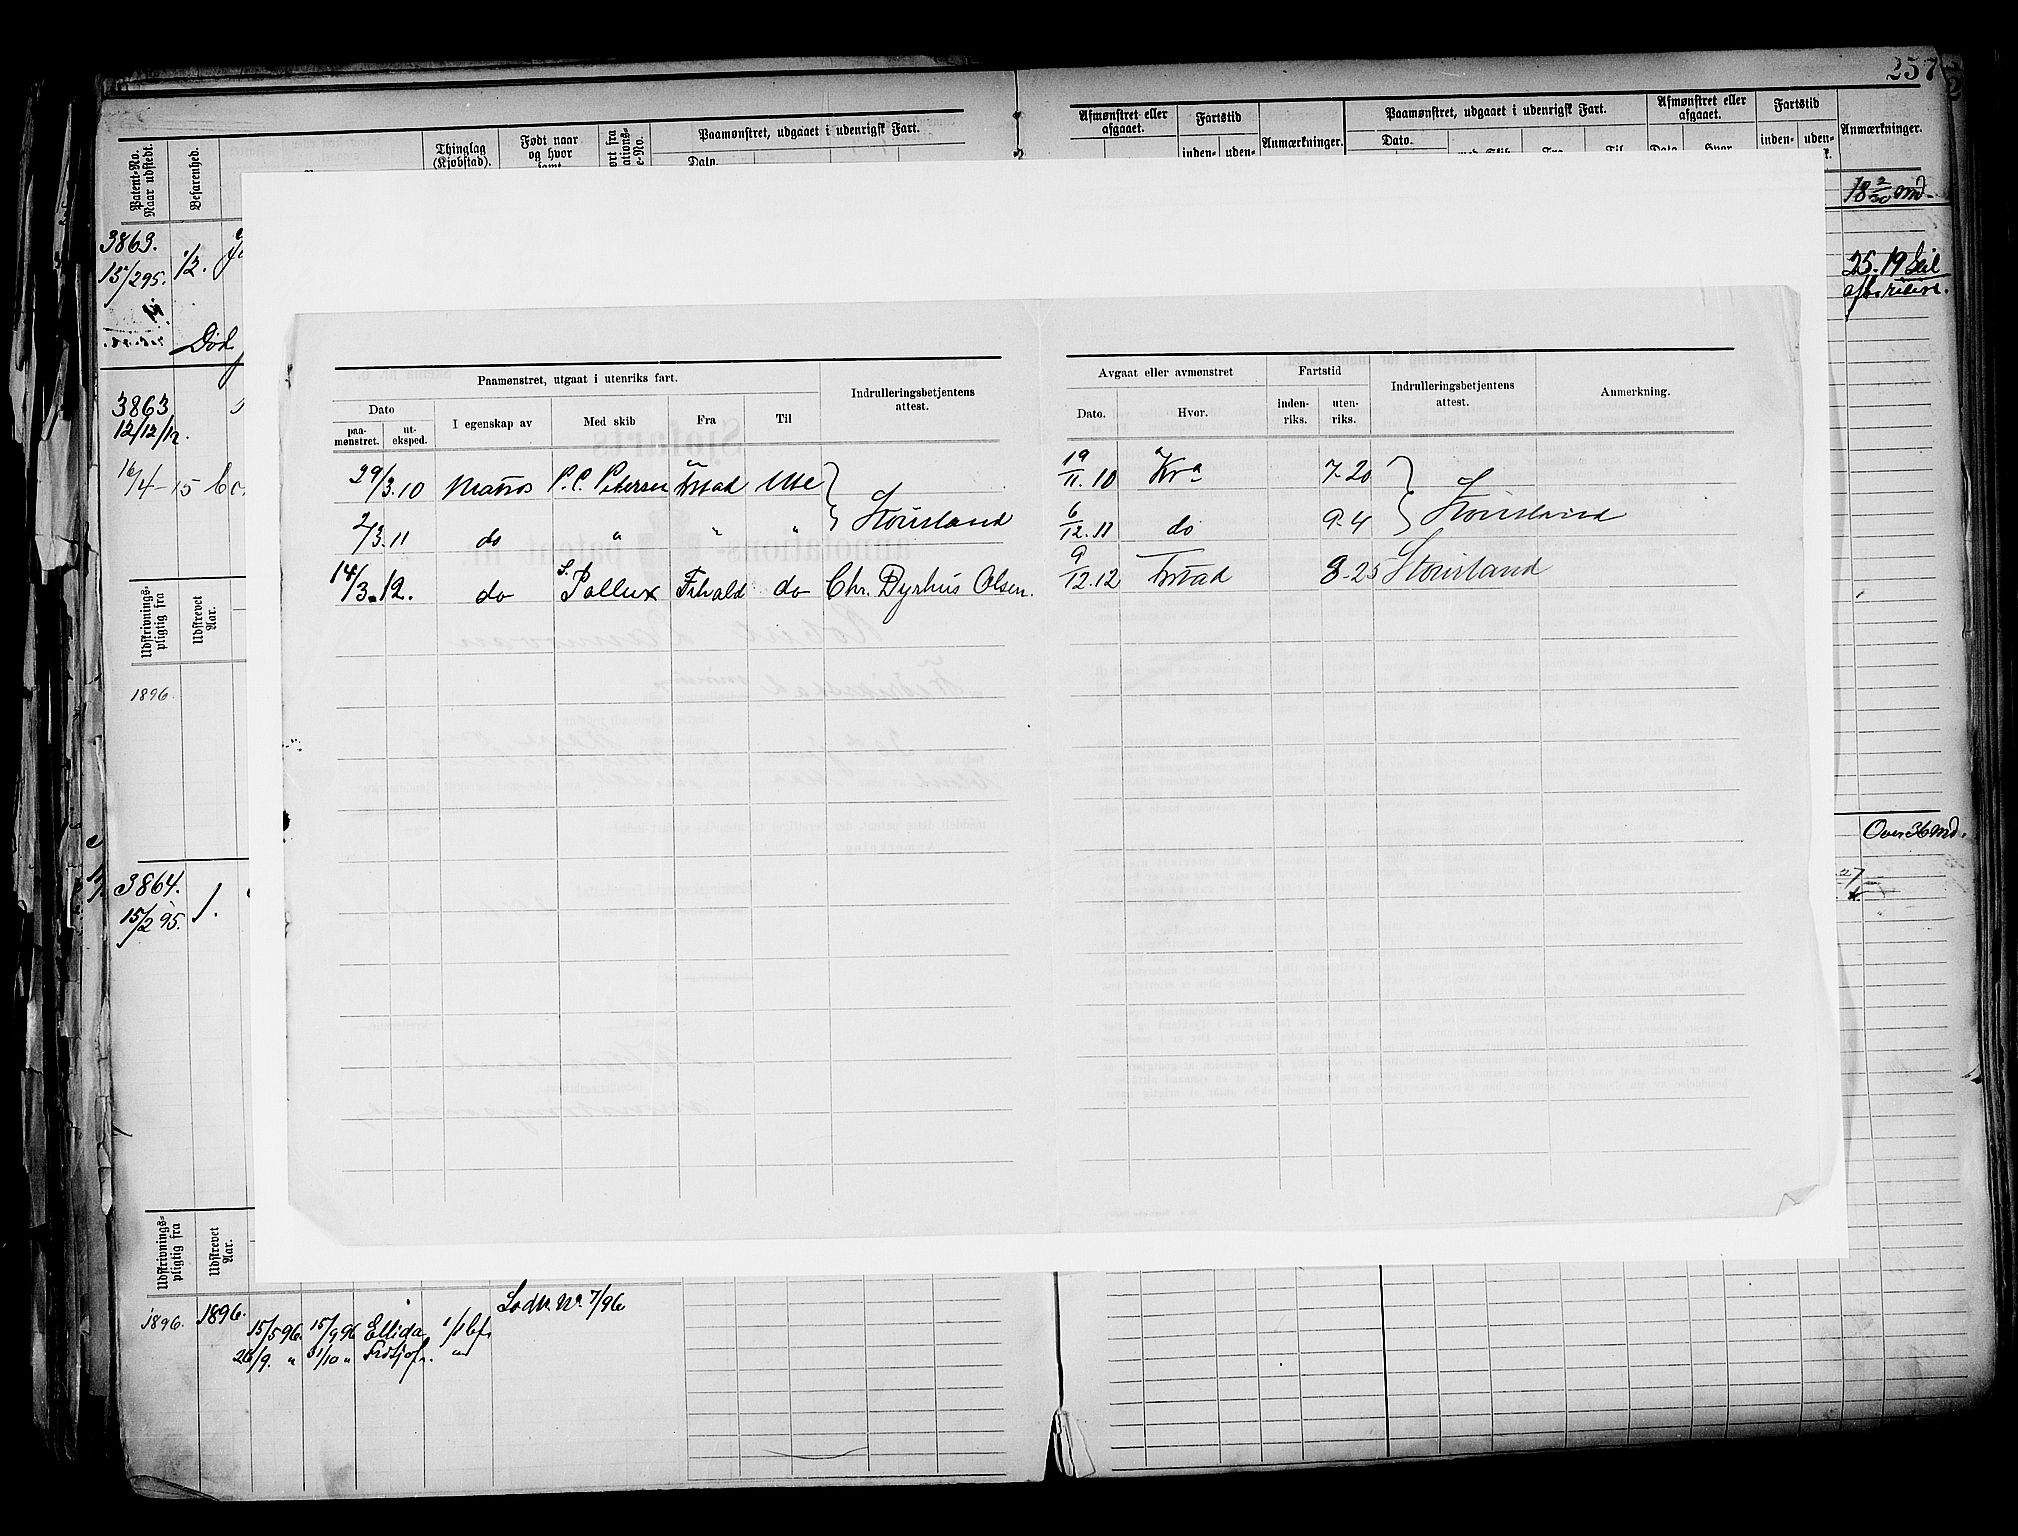 257
Patent-No. Naar udstedt.
Befarenhed.
Thinglag (Kjøbstad).
Født naar og hvor
Paamønstret, udgaaet i udenrigsk Fart.
Dato.
Afmønstret eller afgaaet.
Fartstid
inden-
uden-
Anmærkninger.
Paamønstret, udgaaet i udenrigsk Fart.
Dato.
Afmønstret eller afgaaet.
Fartstid
inden-
uden-
Anmærkninger.
3863.
15/2 95.
1/2.
Død
3863
12/12/12
16/4-15
Udskrivnings-pligtig fra
Udskrevet Aar.
1896.
3864.
15/2 95.
1.
Udskrivnings-pligtig fra
Udskrevet Aar.
1896. 1896.
15/5 96. 15/9 96 Ellida
26/9. " 31/10 " Fridtjof.
18 2/30 md.
25.19 Seil
Over 36 md.
Paamønstret, utgaat i utenriks fart.
Indrulleringsbetjentens attest.
Dato
paa-mønstret.
ut-eksped.
I egenskap av
Med skib
Fra
Til
29/3.10 Matros P. C. Petersen Frstad Ute
2/3.11 do " " " Stousland
14/3.12. do S. Pollux Frhald do Chr. Dyrhus Olsen.
Avgaat eller avmønstret
Fartstid
Indrulleringsbetjentens attest.
Anmerkning.
Dato.
Hvor.
inden-riks.
uten-riks.
19/11.10 Kra 7-20
6/12.11 do 9-4 Stousland
9/12.12 Frstad 8-25 Stousland